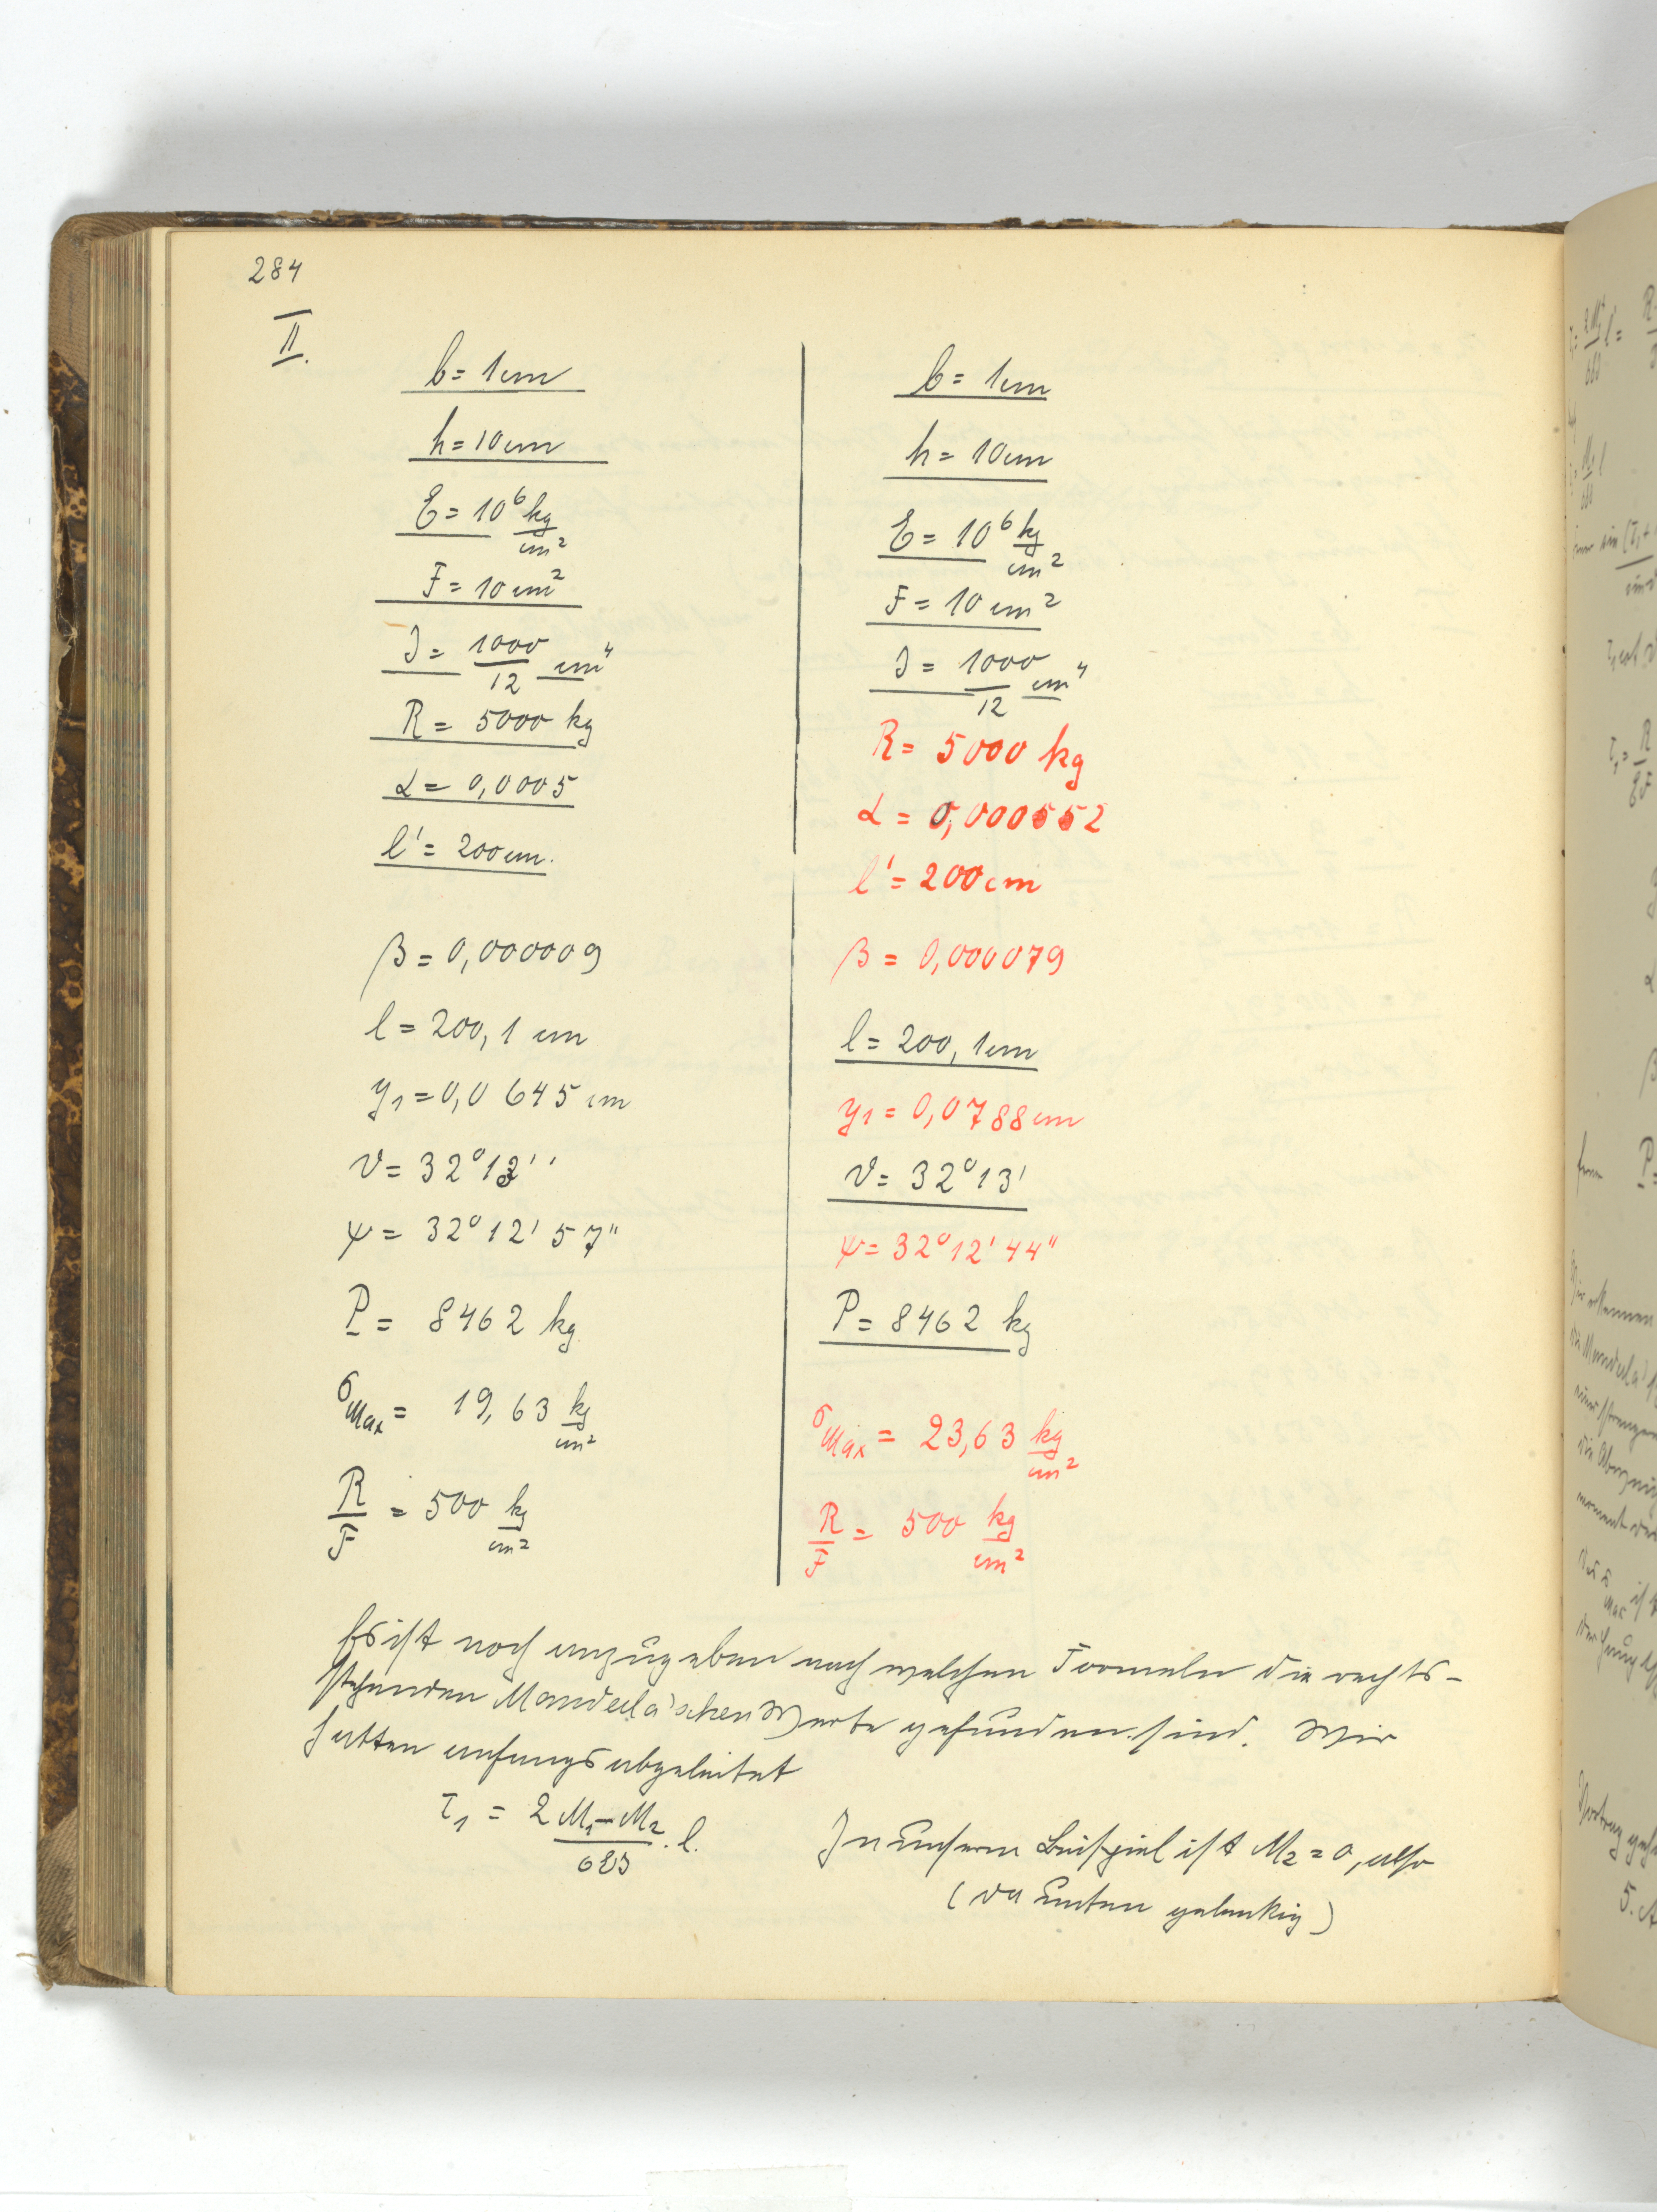 284
II.
b = 1 cm
h = 10 cm
E = 10⁶ kg/cm²
F = 10 cm²
J = 1000/12 cm⁴
R = 5000 kg
α = 0,0005
l' = 200 cm.
β = 0,000009
l = 200,1 cm
y₁ = 0,0645 cm
ϑ = 32°13'
ψ = 32°12'57"
P = 8462 kg
σMax = 19,63 kg/cm²
R/F = 500 kg/cm²
b = 1 cm
h = 10 cm
E = 10⁶ kg/cm²
F = 10 cm²
J = 1000/12 cm⁴
R = 5000 kg
α = 0,000552
l' = 200 cm
β = 0,000079
l = 200,1 cm
y₁ = 0,0788 cm
ϑ = 32°13'
ψ = 32°12'44"
P = 8462 kg
σMax = 23,63 kg/cm²
R/F = 500 kg/cm²
Es ist noch anzugeben nach welchen Formeln die rechts-
stehenden Manderla'schen Werte gefunden sind. Wir
hatten anfangs abgeleitet
τ₁ = (2M₁ - M₂)/(6EJ) . l.
In unserm Beispiel ist M₂ = 0, also
(da unten gelenkig)